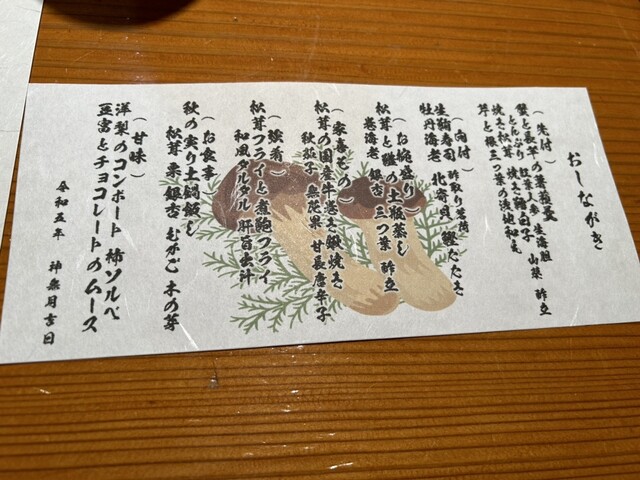 おしながき
（先付）
蟹と長芋の養老羹
とんぶり 紅葉人参 生海胆 山葵 酢立
焼き松茸 焼き鱧白子
芹と三つ葉の浸地和え
（向付）
生鯖寿司 酢取り茗荷
牡丹海老 北寄貝 鰹たたき
（お椀盛り）
松茸と鱧の土瓶蒸し
巻海老 銀杏 三つ葉 酢立
（家喜もの）
松茸の国産牛巻き鍬焼き
秋茄子 無花果 甘長唐辛子
（強肴）
松茸フライと煮鮑フライ
和風タルタル 肝百出汁
（お食事）
秋の実り土鍋飯し
松茸 栗 銀杏 むかご 木の芽
（甘味）
洋梨のコンポート 柿ソルベ
豆富とチョコレートのムース
令和五年 神無月吉日